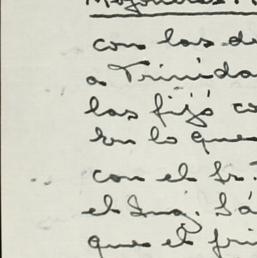 con las de
a Trinida
las fijó co
En lo que
con el Sr.
el Ing. Sá
ques el fri